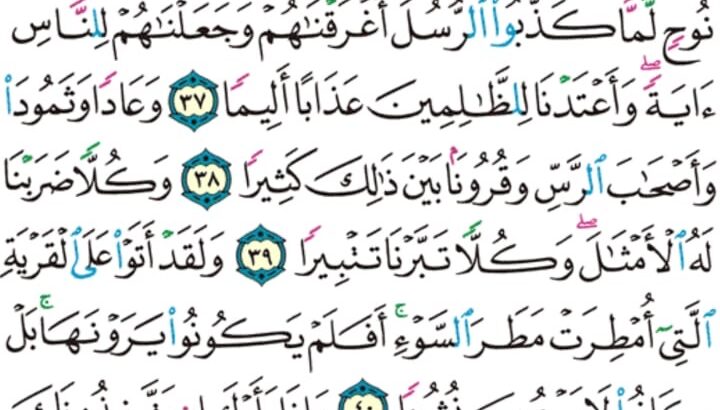 نُوحٍ لَّمَّا كَذَّبُوا۟ ٱلرُّسُلَ أَغْرَقْنَـٰهُمْ وَجَعَلْنَـٰهُمْ لِلنَّاسِ
ءَايَةًۖ وَأَعْتَدْنَا لِلظَّـٰلِمِينَ عَذَابًا أَلِيمًا ٣٧ وَعَادًا وَثَمُودَا۟
وَأَصْحَـٰبَ ٱلرَّسِّ وَقُرُونًۢا بَيْنَ ذَٰلِكَ كَثِيرًا ٣٨ وَكُلًّا ضَرَبْنَا
لَهُ ٱلْأَمْثَـٰلَۖ وَكُلًّا تَبَّرْنَا تَتْبِيرًا ٣٩ وَلَقَدْ أَتَوْا۟ عَلَى ٱلْقَرْيَةِ
ٱلَّتِىٓ أُمْطِرَتْ مَطَرَ ٱلسَّوْءِۚ أَفَلَمْ يَكُونُوا۟ يَرَوْنَهَاۚ بَلْ